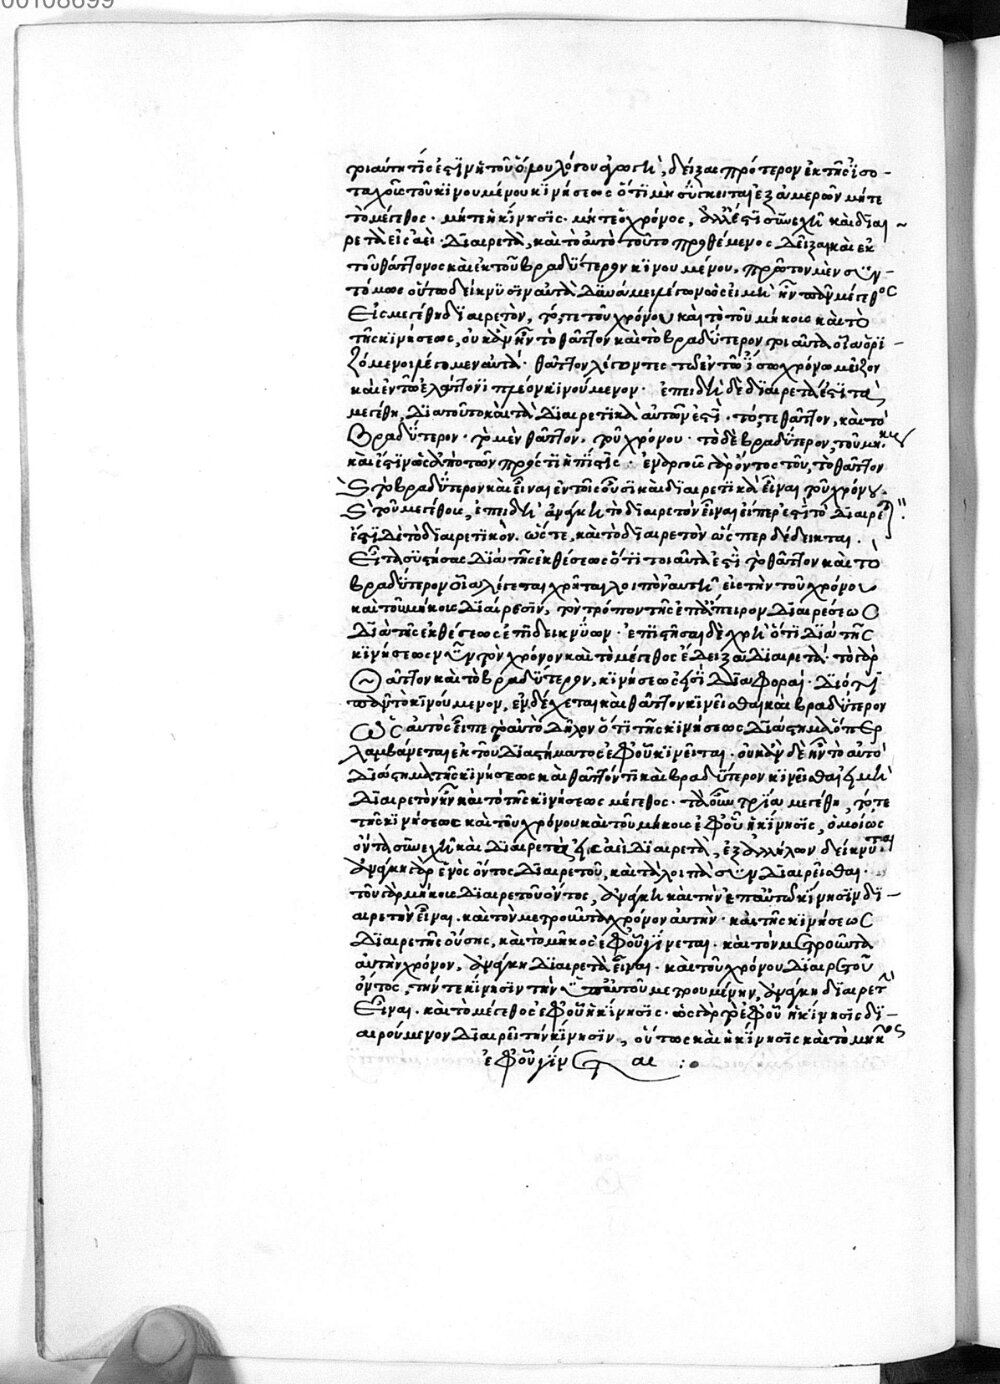 00108699
τάχους τοῦ κινουμένου κινήσεως ὅτι μὴ σύγκειται ἐξ ἀμερῶν μήτε
τὸ μέγεθος· μήτε ἡ κίνησις· μήτε ὁ χρόνος, ἀλλ' ἔστι συνεχῆ καὶ διαι-
ρετὰ εἰς ἀεὶ διαιρετὰ, καὶ τὸ αὐτὸ τοῦτο προθέμενος δεῖξαι καὶ ἐκ
τοῦ θάττονος καὶ ἐκ τοῦ βραδύτερον κινουμένου, πρῶτον μὲν συν-
τόμως οὕτω δείκνυσιν αὐτὰ
τῆς κινήσεως, οὐκ ἂν ἦν τὸ θᾶττον καὶ τὸ βραδύτερον
ζόμενοι λέγομεν αὐτά· θᾶττον λέγοντες τὸ ἐν τῷ ἴσῳ χρόνῳ μεῖζον
καὶ ἐν τῷ ἐλάττονι πλέον κινούμενον· ἐπειδὴ δὲ διαιρετά ἐστι τὰ
μεγέθη, διὰ τοῦτο καὶ τὰ διαιρετικὰ αὐτῶν ἐστί· τό, τε θᾶττον, καὶ τὸ
βραδύτερον· τὸ μὲν θᾶττον, τοῦ χρόνου· τὸ δὲ βραδύτερον, τοῦ μήκους
καὶ ἔστιν ὡς ἀπὸ τῶν πρός τι ἡ πίστις·
τὸ βραδύτερον καὶ εἶναι ἐν τοῖς οὖσι καὶ διαιρετικὰ εἶναι τοῦ χρόνου
τοῦ μεγέθους, ἐπειδὴ ἀνάγκη τὸ διαιρετὸν εἶναι εἴπερ ἐστὶ τὸ διαιρε
ἔστι δὲ τὸ διαιρετικόν. ὥστε, καὶ τὸ διαιρετὸν ὥσπερ δέδεικται.
διὰ τῆς ἐκθέσεως ὅτι τοιαῦτά ἐστι τὸ θᾶττον καὶ τὸ
βραδύτερον οἷα λέγεται χρῆται λοιπὸν αὐτῇ εἰς τὴν τοῦ χρόνου
καὶ τοῦ μήκους διαίρεσιν, τὸν τρόπον τῆς ἐπ' ἄπειρον διαιρέσεως
διὰ τῆς ἐκθέσεως ἐπιδεικνύων· ἐπιστῆσαι δὲ χρὴ ὅτι διὰ τῆς
κινήσεως νῦν τὸν χρόνον καὶ τὸ μέγεθος ἔδειξε διαιρετά· τὸ γὰρ
θᾶττον καὶ τὸ βραδύτερον, κινήσεώς εἰσι διαφοραί· διότι
τὸ κινούμενον, ἐνδέχεται καὶ θᾶττον κινεῖσθαι καὶ βραδύτερον
ὡς αὐτὸς εἶπε τὸ αὐτὸ δῆλον ὅτι τῆς κινήσεως διάστημα ὅπερ
λαμβάνεται ἐκ τοῦ διαστήματος ἐφ' οὗ κινεῖται· οὐκ ἂν δὲ ἦν τὸ αὐτὸ
διάστημα τῆς κινήσεως καὶ θᾶττόν τι καὶ βραδύτερον κινεῖσθαι εἰ μὴ
διαιρετὸν ἦν καὶ τὸ τῆς κινήσεως μέγεθος· τὰ οὖν τρία μεγέθη, τό, τε
τῆς κινήσεως καὶ τοῦ χρόνου καὶ τοῦ μήκους ἐφ' οὗ ἡ κίνησις, ὁμοίως
ὄντα συνεχῆ καὶ διαιρετὰ εἰς ἀεὶ διαιρετὰ, ἐξ ἀλλήλων δείκνυται
ἀνάγκη γὰρ ἑνὸς ὄντος διαιρετοῦ, καὶ τὰ λοιπὰ συνδιαιρεῖσθαι·
τοῦ γὰρ μήκους διαιρετοῦ ὄντος, ἀνάγκη καὶ τὴν ἐπ' αὐτῷ κίνησιν δι-
αιρετὴν εἶναι, καὶ τὸν μετροῦντα χρόνον αὐτήν· καὶ τῆς κινήσεως
διαιρετῆς οὔσης, καὶ τὸ μῆκος ἐφ' οὗ γίνεται· καὶ τὸν μετροῦντα
αὐτὴν χρόνον, ἀνάγκη διαιρετὰ εἶναι· καὶ τοῦ χρόνου διαιρετοῦ
ὄντος, τήν τε κίνησιν τὴν ὑπ' αὐτοῦ μετρουμένην, ἀνάγκη διαιρετὴν
εἶναι· καὶ τὸ μέγεθος ἐφ' οὗ ἡ κίνησις· ὡς γὰρ τὸ ἐφ' οὗ ἡ κίνησις δι-
αιρούμενον διαιρεῖ τὴν κίνησιν, οὕτως καὶ ἡ κίνησις καὶ τὸ μῆκος
ἐφ' οὗ γίνεται :·